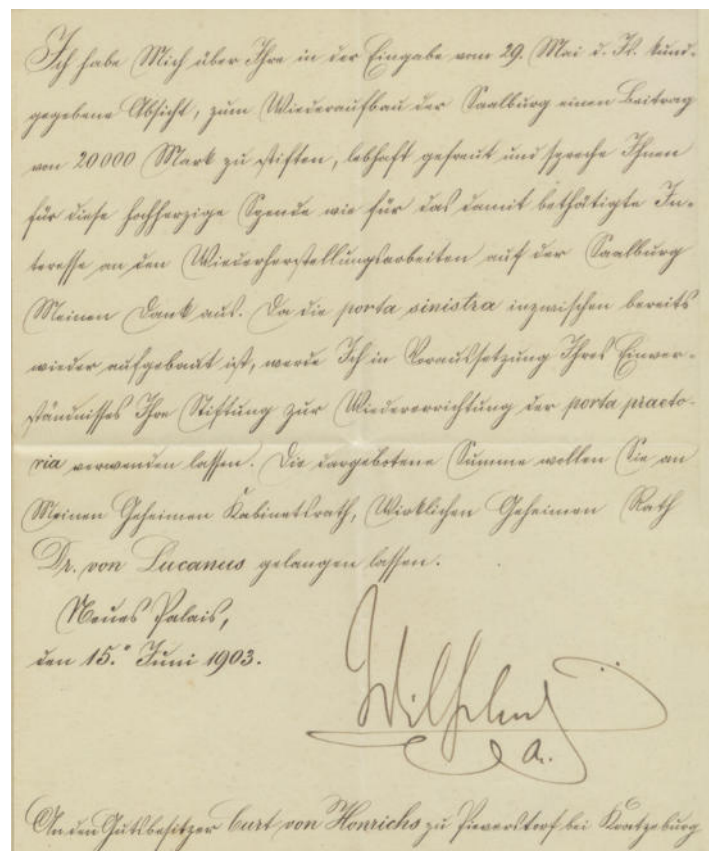 Ich habe Mich über Ihre in der Eingabe vom 29. Mai d. Js. kund-
gegebene Absicht, zum Wiederaufbau der Saalburg einen Beitrag
von 20000 Mark zu stiften, lebhaft gefreut und spreche Ihnen
für diese hochherzige Spende wie für das damit bethätigte In-
teresse an den Wiederherstellungsarbeiten auf der Saalburg
Meinen Dank aus. Da die porta sinistra inzwischen bereits
wieder aufgebaut ist, werde Ich in Voraussetzung Ihres Einver-
ständnisses Ihre Stiftung zur Wiedererrichtung der porta praeto-
ria verwenden lassen. Die dargebotene Summe wollen Sie an
Meinen Geheimen Kabinetsrath, Wirklichen Geheimen Rath
Dr. von Lucanus gelangen lassen.
Neues Palais,
den 15. Juni 1903.
Wilhelm
An den Gutsbesitzer Curt von Honrichs zu Pieverstorf bei Kratzeburg